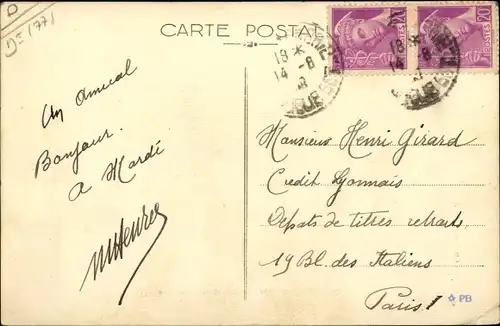 D
CARTE POSTALE
20
20
POSTES
18 *
14 -8
18
14 -8
Un Amical
Bonjour.
A Mardi
Monsieur Henri Girard
Credit Lyonnais
Depots de titres retraits
19 Bl. des Italiens
Paris
PB